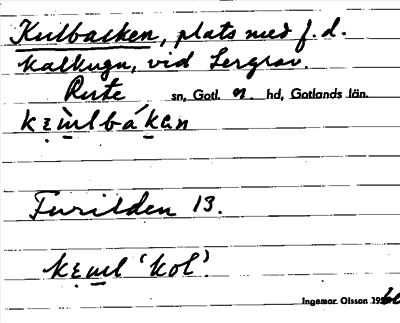 Kulbacken, plats med f.d.
kalkugn, vid Lergrav.
Rute sn, Gotl. n. hd, Gotlands län.
Furilden 13.
'kol'
Ingemar Olsson 19